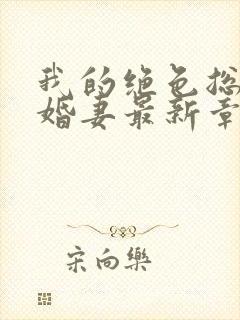 我的绝色总
婚妻最新章
宋向乐